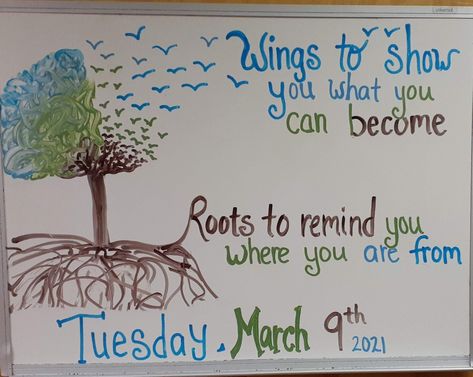 Wings to show
you what you
can become
Roots to remind you
where you are from
Tuesday, March 9th 2021